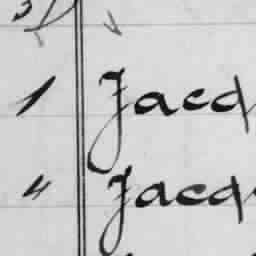 1 Jacq
" Jacq